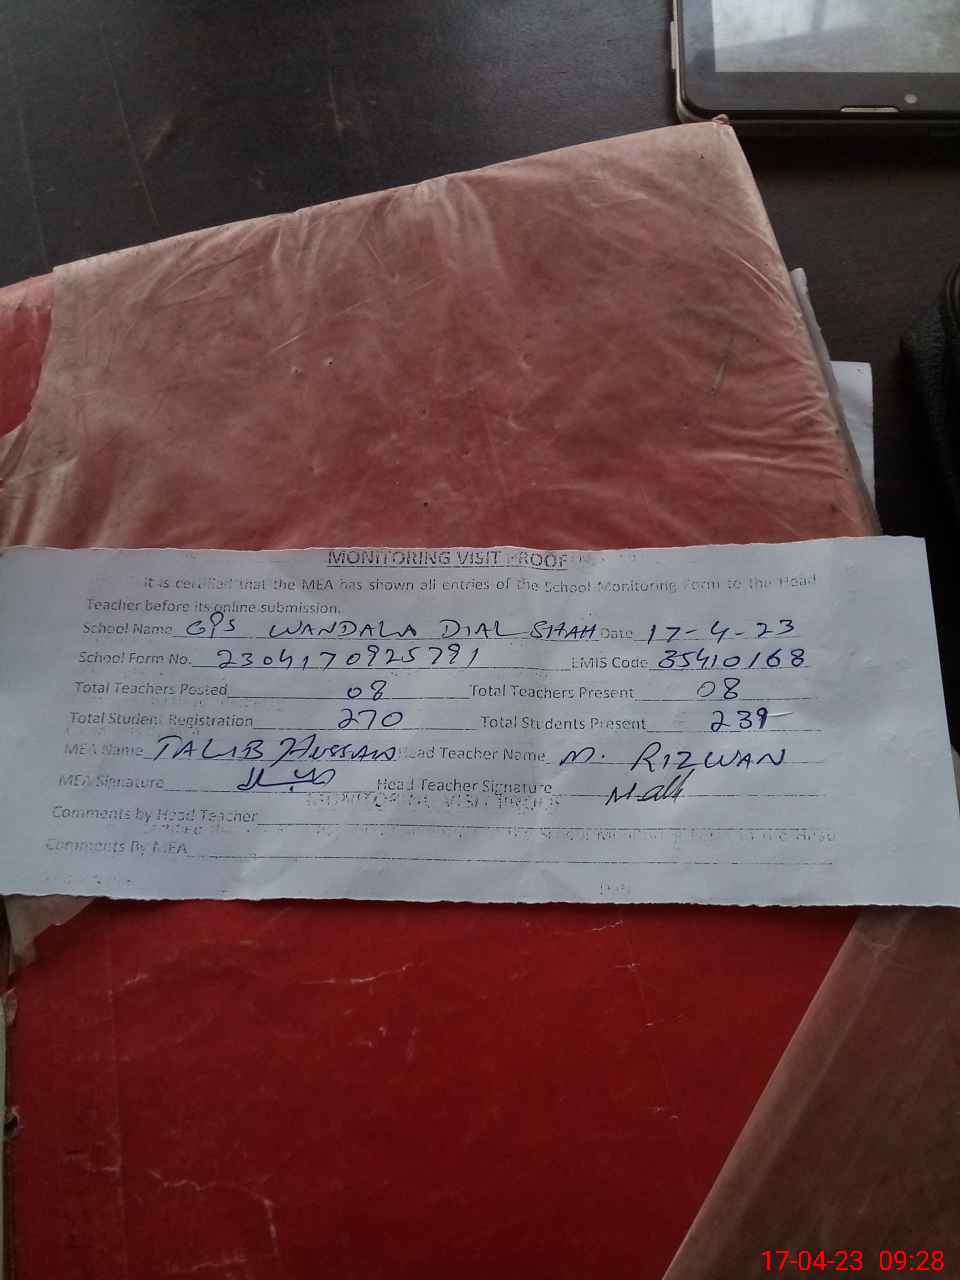 MONITORING VISIT PROOF
It is certified that the MEA has shown all entries of the School Monitoring Form to the Head
Teacher before its online submission.
School Name GPS WANDALA DIAL SHAH Date 17-4-23
School Form No. 2304170925791 EMIS Code 35410168
Total Teachers Posted 08 Total Teachers Present 08
Total Student Registration 270 Total Students Present 239
MEA Name TALIB HUSSAIN Head Teacher Name M. RIZWAN
MEA Signature Head Teacher Signature
MONITORING VISIT PROOF
Comments by Head Teacher
Comments By MEA
Date
17-04-23 09:28